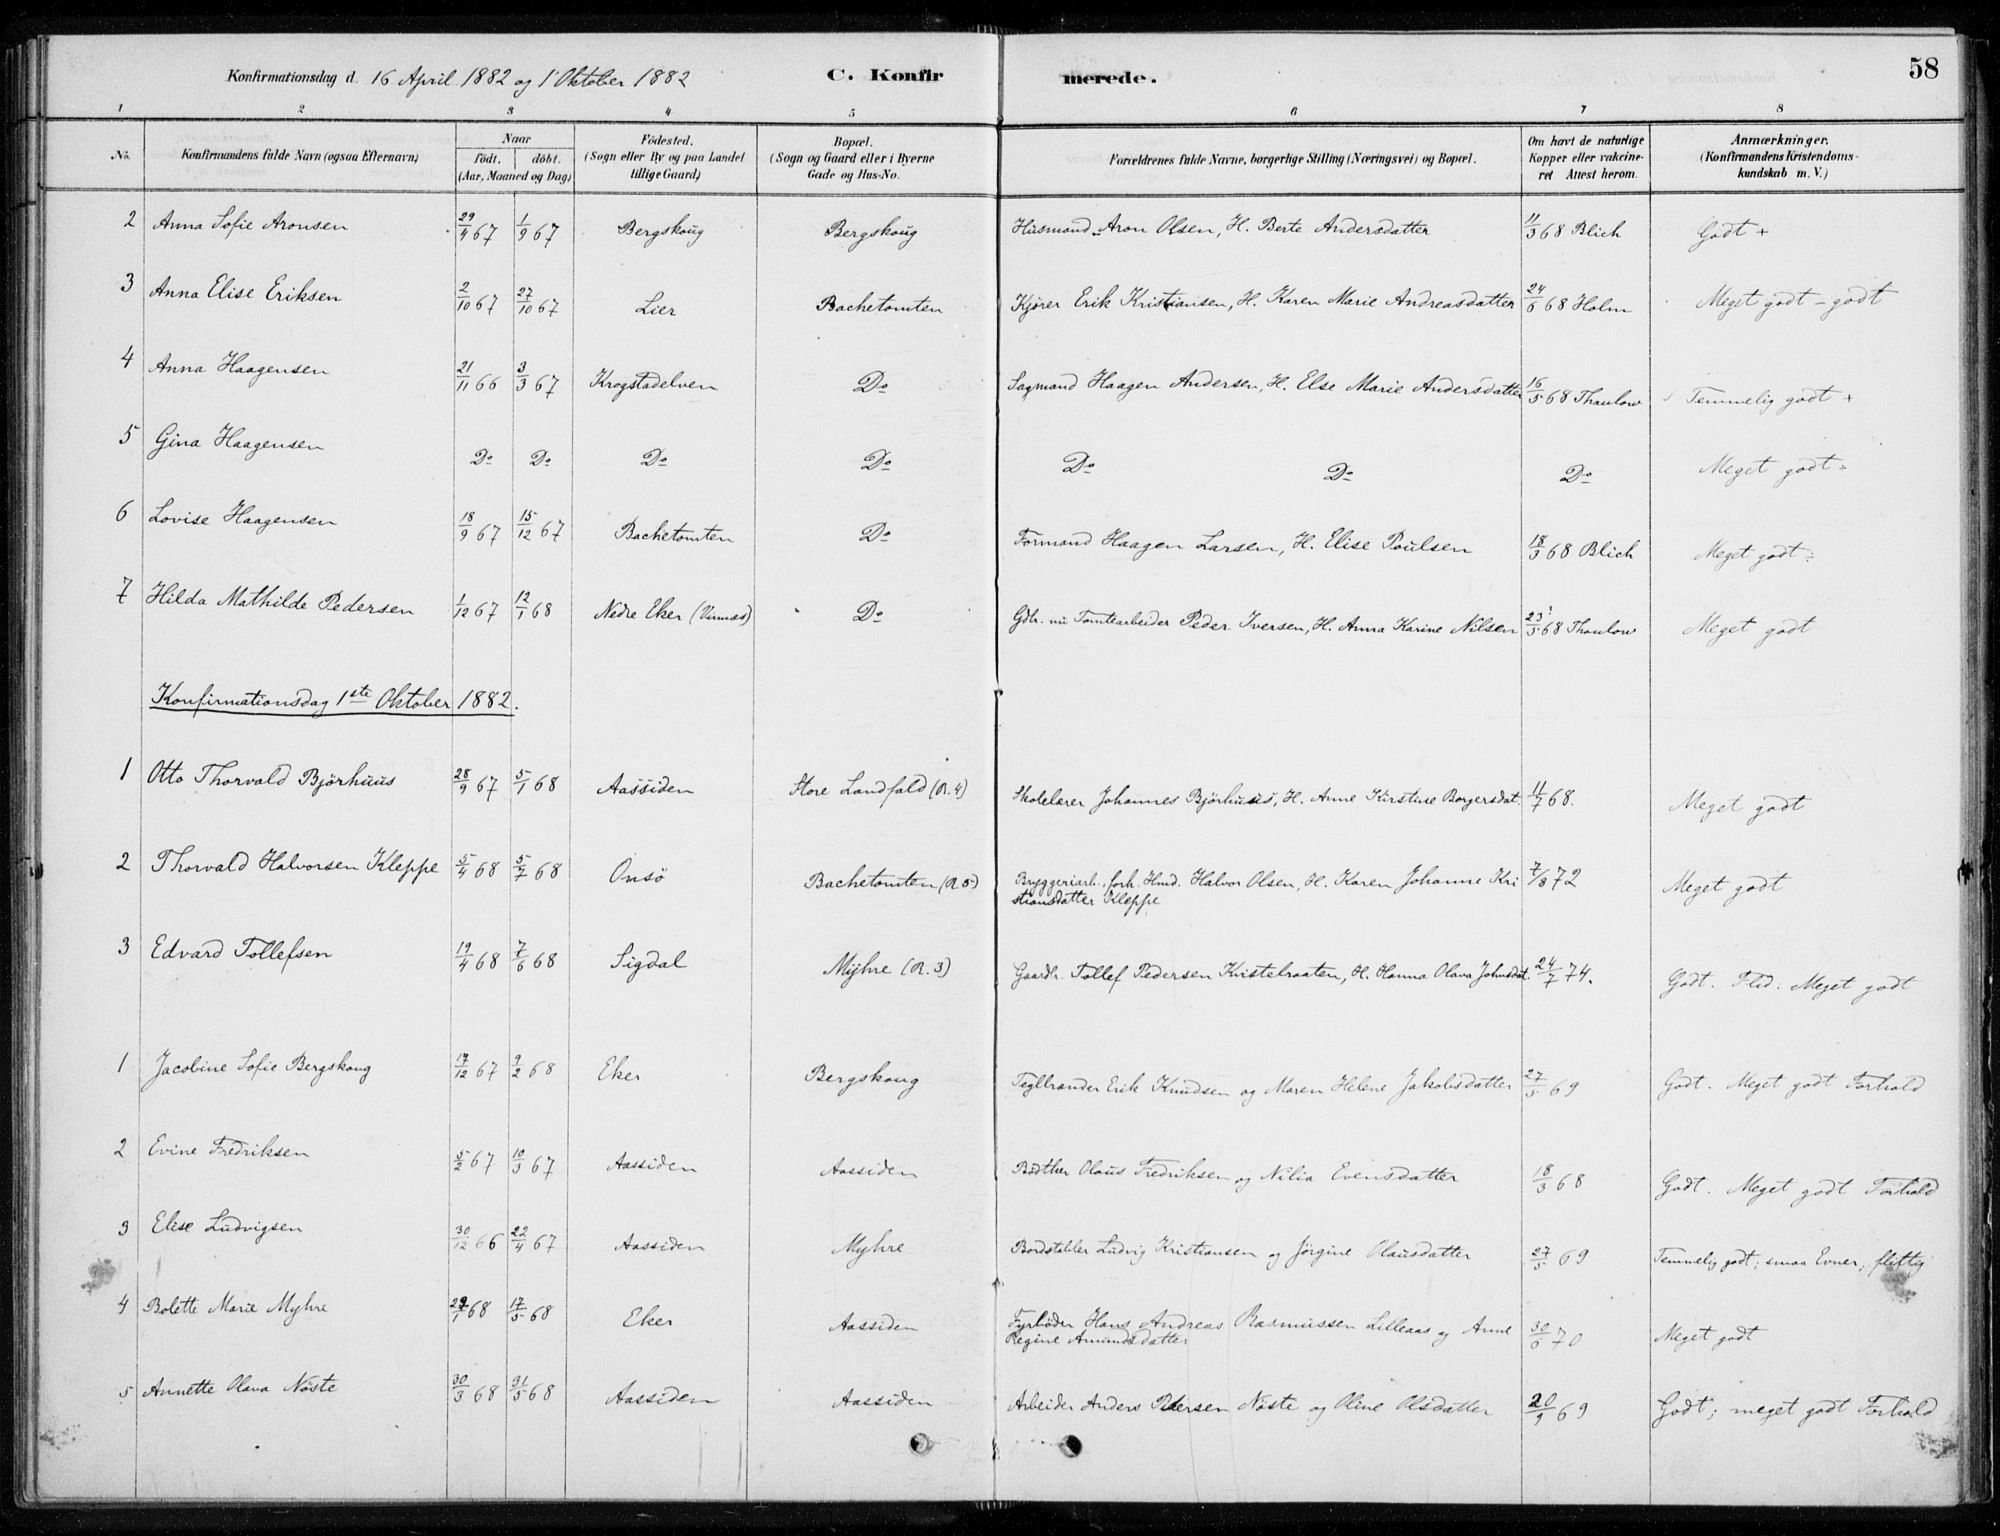 Konfirmationsdag d. 16 April 1882 og 1 Oktober 1882 C. Konfir merede. 58
1 2 3 4 5 6 7 8
No. Konfirmandens fulde Navn (ogsaa Efternavn) Naar født. døbt. (Aar, Maaned og Dag) Födested. (Sogn eller By og paa Landet tillige Gaard) Bopæl. (Sogn og Gaard eller i Byerne Gade og Hus-No. Forældrenes fulde Navne, borgerlige Stilling (Næringsvei) og Bopæl. Om havt de naturlige Kopper eller vakcineret Attest herom. Anmærkninger. (Konfirmandens Kristendomskundskab m. V.)
2 Anna Sofie Aronsen 29/4 67 1/9 67 Bergskoug Bergskoug Husmand Aron Olsen, H. Berte Andersdatter 11/3 68 Blich Godt +
3 Anna Elise Eriksen 2/10 67 27/10 67 Lier Bachetomten Kjörer Erik Kristiansen, H. Karen Marie Andreasdatter 24/6 68 Holm Meget godt - godt
4 Anna Haagensen 21/11 66 3/3 67 Krogstadelven Do Sagmand Haagen Andersen, H. Else Marie Andersdatter 16/5 68 Thaulow Temmelig godt +
5 Gina Haagensen Do Do Do Do Do Do Do Meget godt
6 Lovise Haagensen 18/9 67 15/12 67 Bachetomten Do Formand Haagen Larsen, H. Elise Poulsen 18/3 68 Blich Meget godt
7 Hilda Mathilde Pedersen 1/12 67 12/1 68 Nedre Eker (Vinnæs) Do Gdbr. nu Tomtearbeider Peder Iversen, H. Anna Karine Nilsen 23/5 68 Thaulow Meget godt
Konfirmationsdag 1ste Oktober 1882.
1 Otto Thorvald Björhuus 28/9 67 5/1 68 Aassiden Store Landfald (R. 4) Skolelærer Johannes Björhuus, H. Anne Kirstine Borgersdat. 11/7 68. Meget godt
2 Thorvald Halvorsen Kleppe 5/4 68 5/7 68 Onsö Bachetomten (R. 5) Bryggeriarb., forh. Hmd. Halvor Olsen, H. Karen Johanne Kri 7/8 72 Meget godt
stiansdatter Kleppe
3 Edvard Tollefsen 19/4 68 7/6 68 Sigdal Myhre (R. 3) Gaardbr. Tollef Pedersen Kristelraaten, H. Hanna Olava Johnsdat. 24/7 74. Godt. Flid: Meget godt
1 Jacobine Sofie Bergskoug 17/12 67 9/2 68 Eker Bergskoug Teglbrænder Erik Knudsen og Maren Helene Jakobsdatter 27/5 69 Godt. Meget godt Forhold
2 Evine Fredriksen 5/2 67 10/3 67 Aassiden Aassiden Bödtker Olaus Fredriksen og Nilia Evensdatter 18/3 68 Godt. Meget godt Forhold
3 Elise Ludvigsen 30/12 66 22/4 67 Aassiden Myhre Bordstabler Ludvig Kristiansen og Jörgine Olausdatter 27/5 69 Temmelig godt; smaa Evner, flittig
4 Bolette Marie Myhre 29/1 68 17/5 68 Eker Aassiden Fyrböder Hans Andreas Rasmussen Lilleaas og Anne 30/6 70 Meget godt
Regine Amundsdatter
5 Annette Olava Nöste 30/3 68 31/5 68 Aassiden Aassiden Arbeider Anders Pedersen Nöste og Oline Olsdatter 20/9 69 Godt; meget godt Forhold